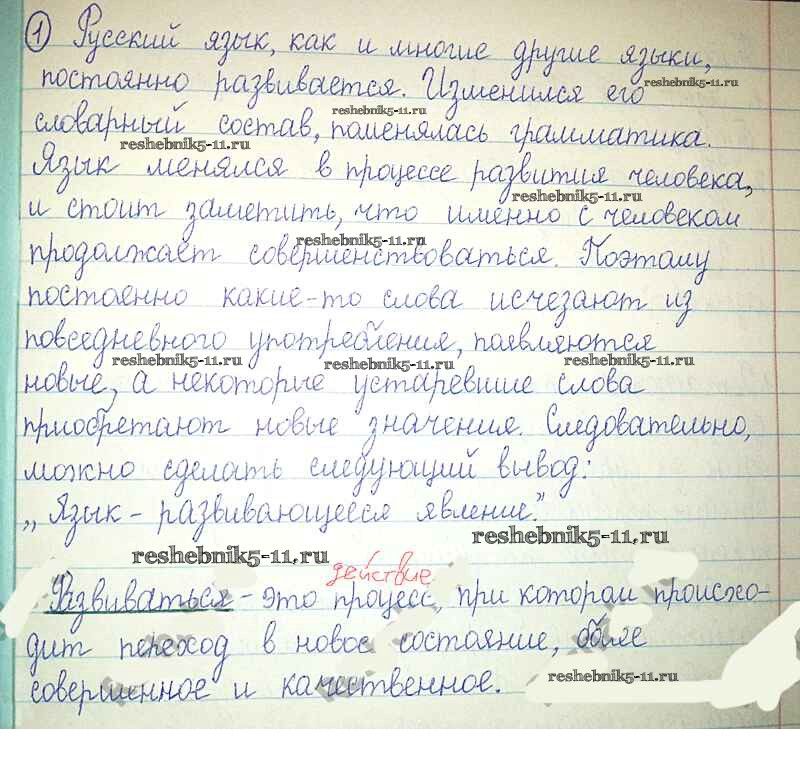 ① Русский язык, как и многие другие языки,
постоянно развивается. Изменился его
reshebnik5-11.ru
reshebnik5-11.ru
словарный состав, поменялась грамматика.
reshebnik5-11.ru
Язык менялся в процессе развития человека,
reshebnik5-11.ru
и стоит заметить, что именно с человеком
reshebnik5-11.ru
продолжает совершенствоваться. Поэтому
постоенно какие-то слова исчезают из
повседневного употребления, появляются
reshebnik5-11.ru reshebnik5-11.ru reshebnik5-11.ru
новые, а некоторые устаревшие слова
приобретают новые значения. Следовательно,
можно сделать следующий вывод:
„Язык - развивающееся явление".
reshebnik5-11.ru
reshebnik5-11.ru
действие
Развиваться - это процесс, при котором происхо-
дит переход в новое состояние, более
reshebnik5-11.ru
совершинное и качественное.